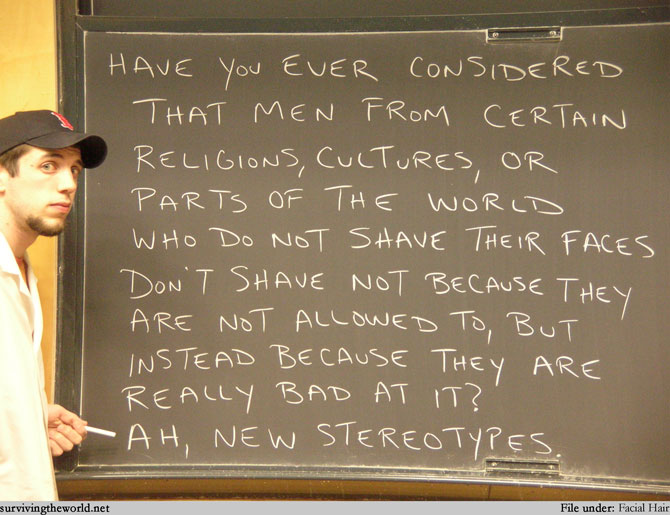 HAVE YOU EVER CONSIDERED
THAT MEN FROM CERTAIN
RELIGIONS, CULTURES, OR
PARTS OF THE WORLD
WHO DO NOT SHAVE THEIR FACES
DON'T SHAVE NOT BECAUSE THEY
ARE NOT ALLOWED TO, BUT
INSTEAD BECAUSE THEY ARE
REALLY BAD AT IT?
AH, NEW STEREOTYPES.
survivingtheworld.net File under: Facial Hair